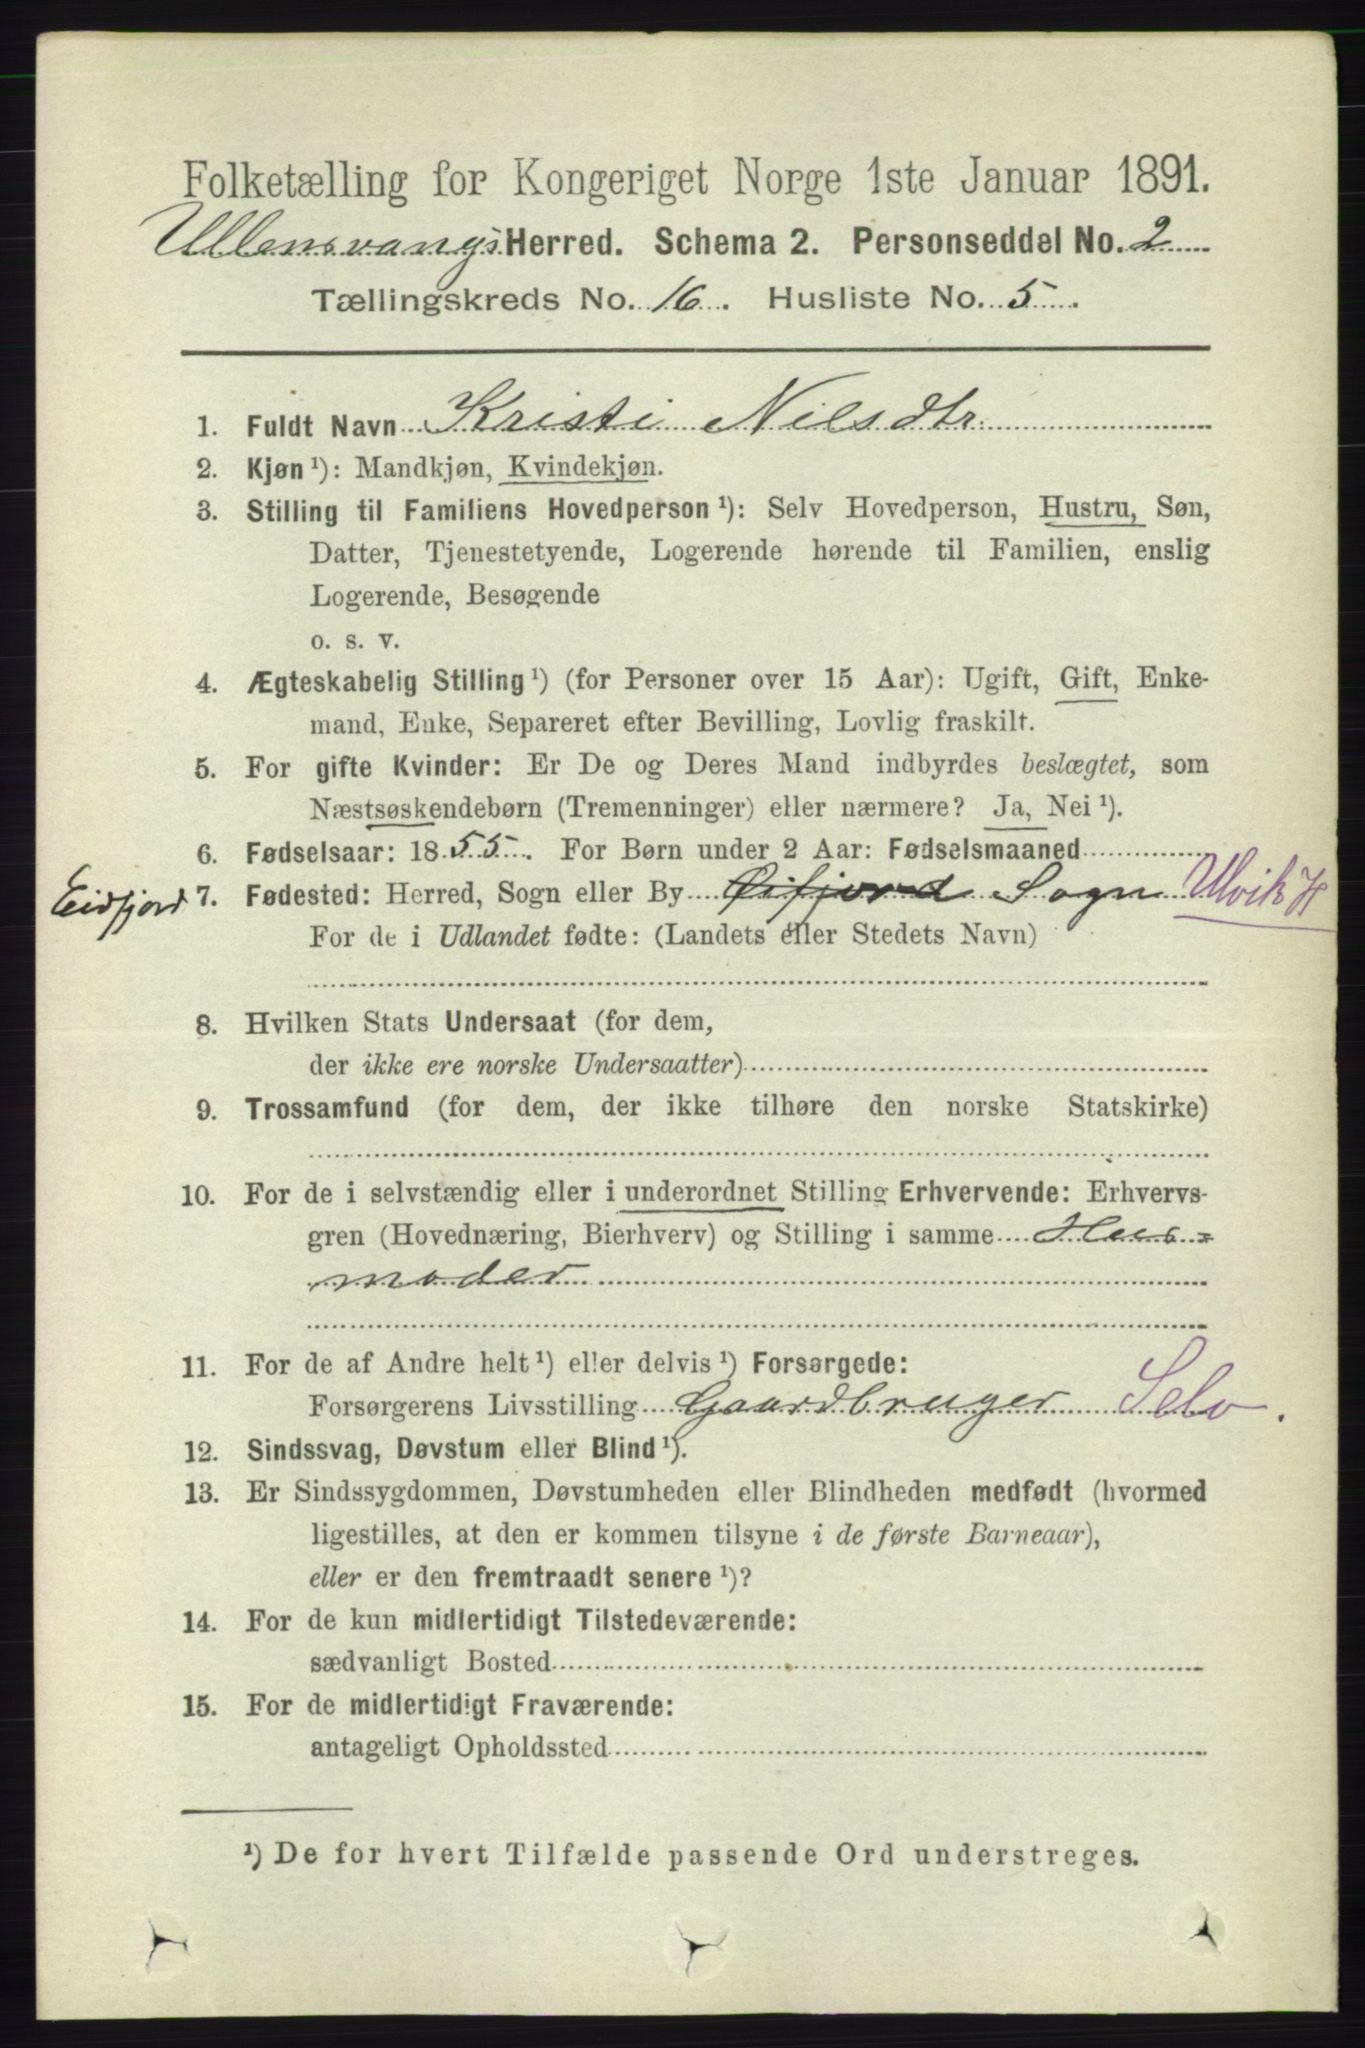 Folketælling for Kongeriget Norge 1ste Januar 1891.
Ullensvangs Herred. Schema 2. Personseddel No. 2
Tællingskreds No. 16. Husliste No. 5.
1. Fuldt Navn Kristi Nilsdtr.
2. Kjøn ¹): Mandkjøn, Kvindekjøn.
3. Stilling til Familiens Hovedperson ¹): Selv Hovedperson, Hustru, Søn,
Datter, Tjenestetyende, Logerende hørende til Familien, enslig
Logerende, Besøgende
o. s. v.
4. Ægteskabelig Stilling ¹) (for Personer over 15 Aar): Ugift, Gift, Enke-
mand, Enke, Separeret efter Bevilling, Lovlig fraskilt.
5. For gifte Kvinder: Er De og Deres Mand indbyrdes beslægtet, som
Næstsøskendebørn (Tremenninger) eller nærmere? Ja, Nei ¹).
6. Fødselsaar: 1855. For Børn under 2 Aar: Fødselsmaaned
Eidfjord 7. Fødested: Herred, Sogn eller By Øifjord Sogn Ulvik H
For de i Udlandet fødte: (Landets eller Stedets Navn)
8. Hvilken Stats Undersaat (for dem,
der ikke ere norske Undersaatter)
9. Trossamfund (for dem, der ikke tilhøre den norske Statskirke)
10. For de i selvstændig eller i underordnet Stilling Erhvervende: Erhvervs-
gren (Hovednæring, Bierhverv) og Stilling i samme Hus=
moder
11. For de af Andre helt ¹) eller delvis ¹) Forsørgede:
Forsørgerens Livsstilling Gaardbruger Selv.
12. Sindssvag, Døvstum eller Blind ¹).
13. Er Sindssygdommen, Døvstumheden eller Blindheden medfødt (hvormed
ligestilles, at den er kommen tilsyne i de første Barneaar),
eller er den fremtraadt senere ¹)?
14. For de kun midlertidigt Tilstedeværende:
sædvanligt Bosted
15. For de midlertidigt Fraværende:
antageligt Opholdssted
¹) De for hvert Tilfælde passende Ord understreges.